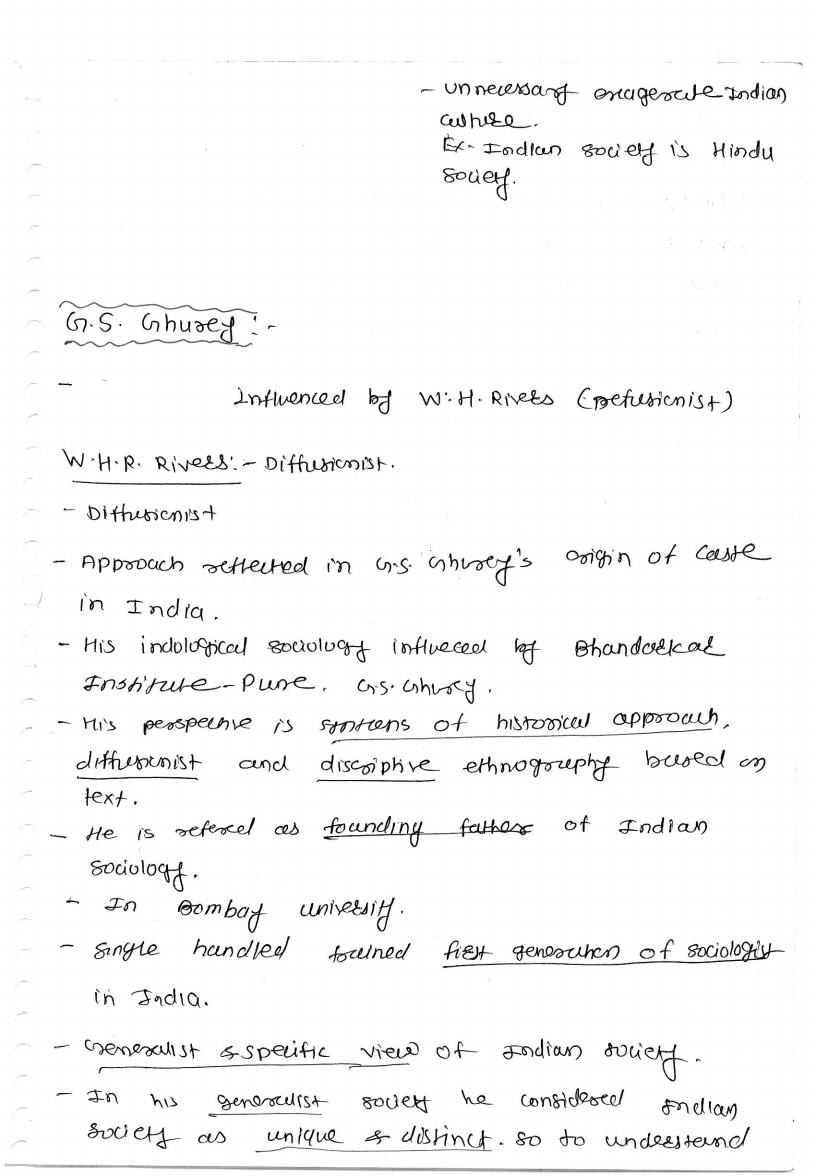 - unnecessary exagerate Indian
culture.
Ex- Indian society is Hindu
society.
G.S. Ghurey :-
-
Influenced by W.H. Rivers (Defusionist)
W.H.R. Rivers:- Diffusionist.
- Diffusionist
- Approach reflected in G.S. Ghurey's origin of caste
in India.
- His indological sociology influeced by Bhandarkar
Institute-Pune. G.S. Ghurey.
- His perspective is syntens of historical approach,
diffusionist and discriptive ethnography based on
text.
- He is refered as founding father of Indian
sociology.
- In Bombay university.
- single handled trained first generation of sociologist
in India.
- Generalist & specific view of Indian society.
- In his generalist society he considered Indian
society as unique & distinct. so to understand